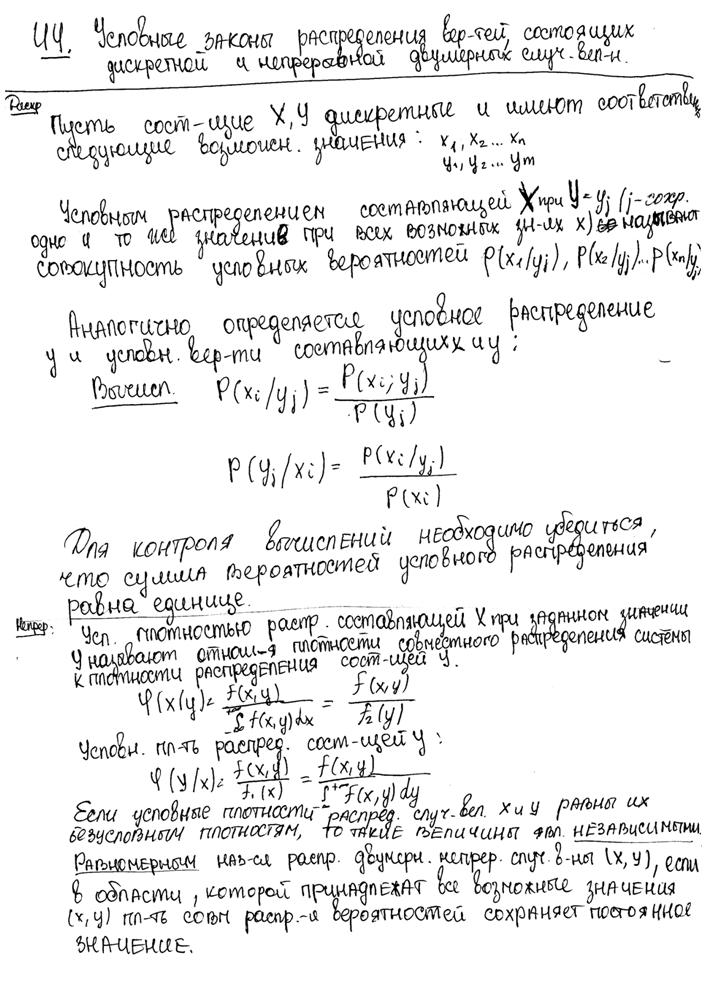 44. Условные законы распределения вер-тей, состоящих
дискретной и непрерывной двумерных случ. вел-н.
Дискр
Пусть сост-щие X, У дискретные и имеют соответствующие
следующие возможн. значения: x₁, x₂... xₙ
y₁, y₂... yₘ
Условным распределением составляющей X при У=yⱼ (j-сохр.
одно и то же значение при всех возможных зн-иях x) называют
совокупность условных вероятностей P(x₁/yⱼ), P(x₂/yⱼ)...P(xₙ/yⱼ)
Аналогично определяется условное распределение
у и условн. вер-ти составляющих x и у:
Вычисл. P(xᵢ/yⱼ) = P(xᵢ; yⱼ) / P(yⱼ)
P(yⱼ/xᵢ) = P(xᵢ/yⱼ) / P(xᵢ)
Для контроля вычислений необходимо убедиться,
что сумма вероятностей условного распределения
равна единице.
Непрер: Усл. плотностью распр. составляющей X при заданном значении
У называют отнош-я плотности совместного распределения системы
к плотности распределения сост-щей У.
φ(x/y) = f(x,y) / ∫f(x,y)dx = f(x,y) / f₂(y)
Условн. пл-ть распред. сост-щей У:
φ(y/x) = f(x,y) / f₁(x) = f(x,y) / ∫f(x,y)dy
Если условные плотности распред. случ. вел. x и у равны их
безусловным плотностям, то такие величины явл. независимыми.
Равномерным наз-ся распр. двумерн. непрер. случ. в-ны (x, y), если
в области, которой принадлежат все возможные значения
(x, y) пл-ть совм распр.-я вероятностей сохраняет постоянное
значение.